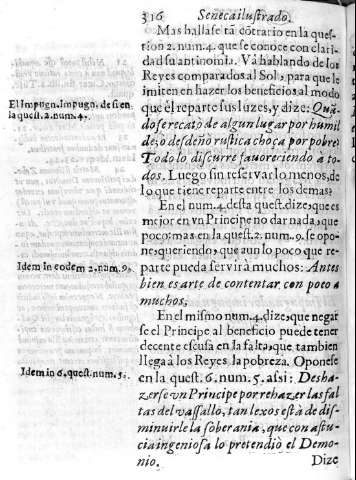 316 Seneca ilustrado.
Mas hallase tã cõtrario en la ques-
tion 2. num. 4. que se conoce con clari-
dad su antinomia. Vá hablando de los
Reyes comparados al Sol, para que le
imiten en hazer los beneficios al modo
que él reparte sus luzes, y dize: Quã-
do se recató de algun lugar por humil
de, ò desdeñò rustica choça por pobre?
Todo lo discurre fauoreciendo à to-
dos. Luego sin reservar lo menos, de
lo que tiene reparte entre los demas?
El Impugn. Impugn. desi en
la quest. 2. num. 4.
En el num. 4. desta quest. dize, que es
mejor en vn Principe no dar nada, que
poco: mas en la quest. 2. num. 9. se opo-
ne, queriendo, que aun lo poco que re-
parte pueda servir à muchos: Antes
bien es arte de contentar con poco à
muchos,
Idem in eodem 2. num. 9.
En el mismo num. 4. dize, que negar
se el Principe al beneficio puede tener
decente escusa en la falta, que tambien
llega à los Reyes la pobreza. Oponese
en la quest. 6. num. 5. assi: Desha-
zerse vn Principe por rehazer las fal
tas del vassallo, tan lexos està de dis-
minuirle la soberania, que con astu-
cia ingeniosa lo pretendiò el Demo-
nio.
Idem in 6. quest. num. 5.
Dize